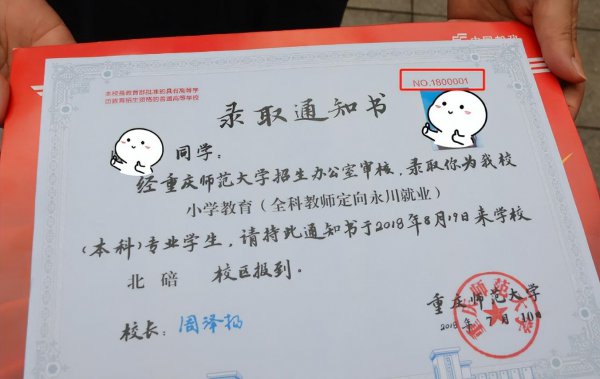 中国邮政
本校是教育部批准的具有高等学
历教育招生资格的普通高等学校
NO.1800001
录取通知书
同学:
经重庆师范大学招生办公室审核,录取你为我校
小学教育(全科教师定向永川就业)
(本科)专业学生,请持此通知书于2018年8月19日来学校
北碚 校区报到。
校长:周泽扬
重庆师范大学
2018年7月10日